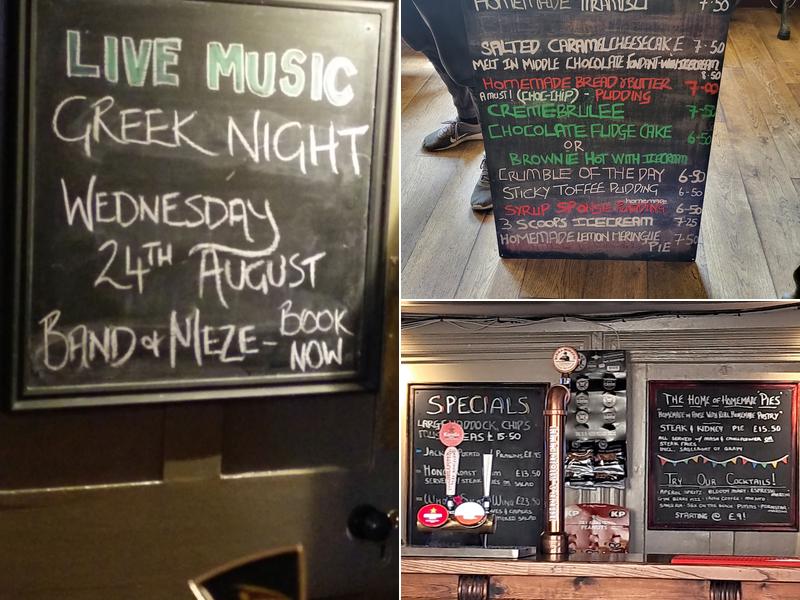 LIVE MUSIC
GREEK NIGHT
WEDNESDAY
24TH AUGUST
BAND & MEZE - BOOK
NOW
HOMEMADE TIRAMISU 7.50
SALTED CARAMEL CHEESECAKE 7.50
MELT IN MIDDLE CHOCOLATE FONDANT WITH ICECREAM
8.50
HOMEMADE BREAD & BUTTER 7-00
A MUST! (CHOC-CHIP) - PUDDING
CREMEBRULEE 7-50
CHOCOLATE FUDGE CAKE 6-50
OR
BROWNIE HOT WITH ICECREAM
CRUMBLE OF THE DAY 6-50
STICKY TOFFEE PUDDING 6-50
homemade
SYRUP SPONGE PUDDING 6-50
3 SCOOPS ICECREAM 7-25
HOMEMADE LEMON MERINGUE
PIE 7-50
SPECIALS
LARGE HADDOCK, CHIPS
PEAS £15.50
JACK POTATO PRAWNS £8.95
HON £13.50
SERVE STEAK OR SALAD
WHO WING £23.50
& CAPERS
MIXED SALAD
THE HOME OF HOMEMADE "PIES"
HOMEMADE IN HOUSE WITH REAL HOMEMADE PASTRY
STEAK & KIDNEY PIE £15.50
ALL SERVED & MASH & CAULIFLOWER OR
STEAK FRIES
INCL. SAUCEBOAT OF GRAVY
TRY OUR COCKTAILS!
APEROL SPRITZ - BLOODY MARY - ESPRESSO
MARTINI
GIN BERRY MIX - IRISH COFFEE - MOJITO
SEX ON THE BEACH PIMMS - PORNSTAR
MARTINI
STARTING @ £9!
KP
KP
PEANUTS